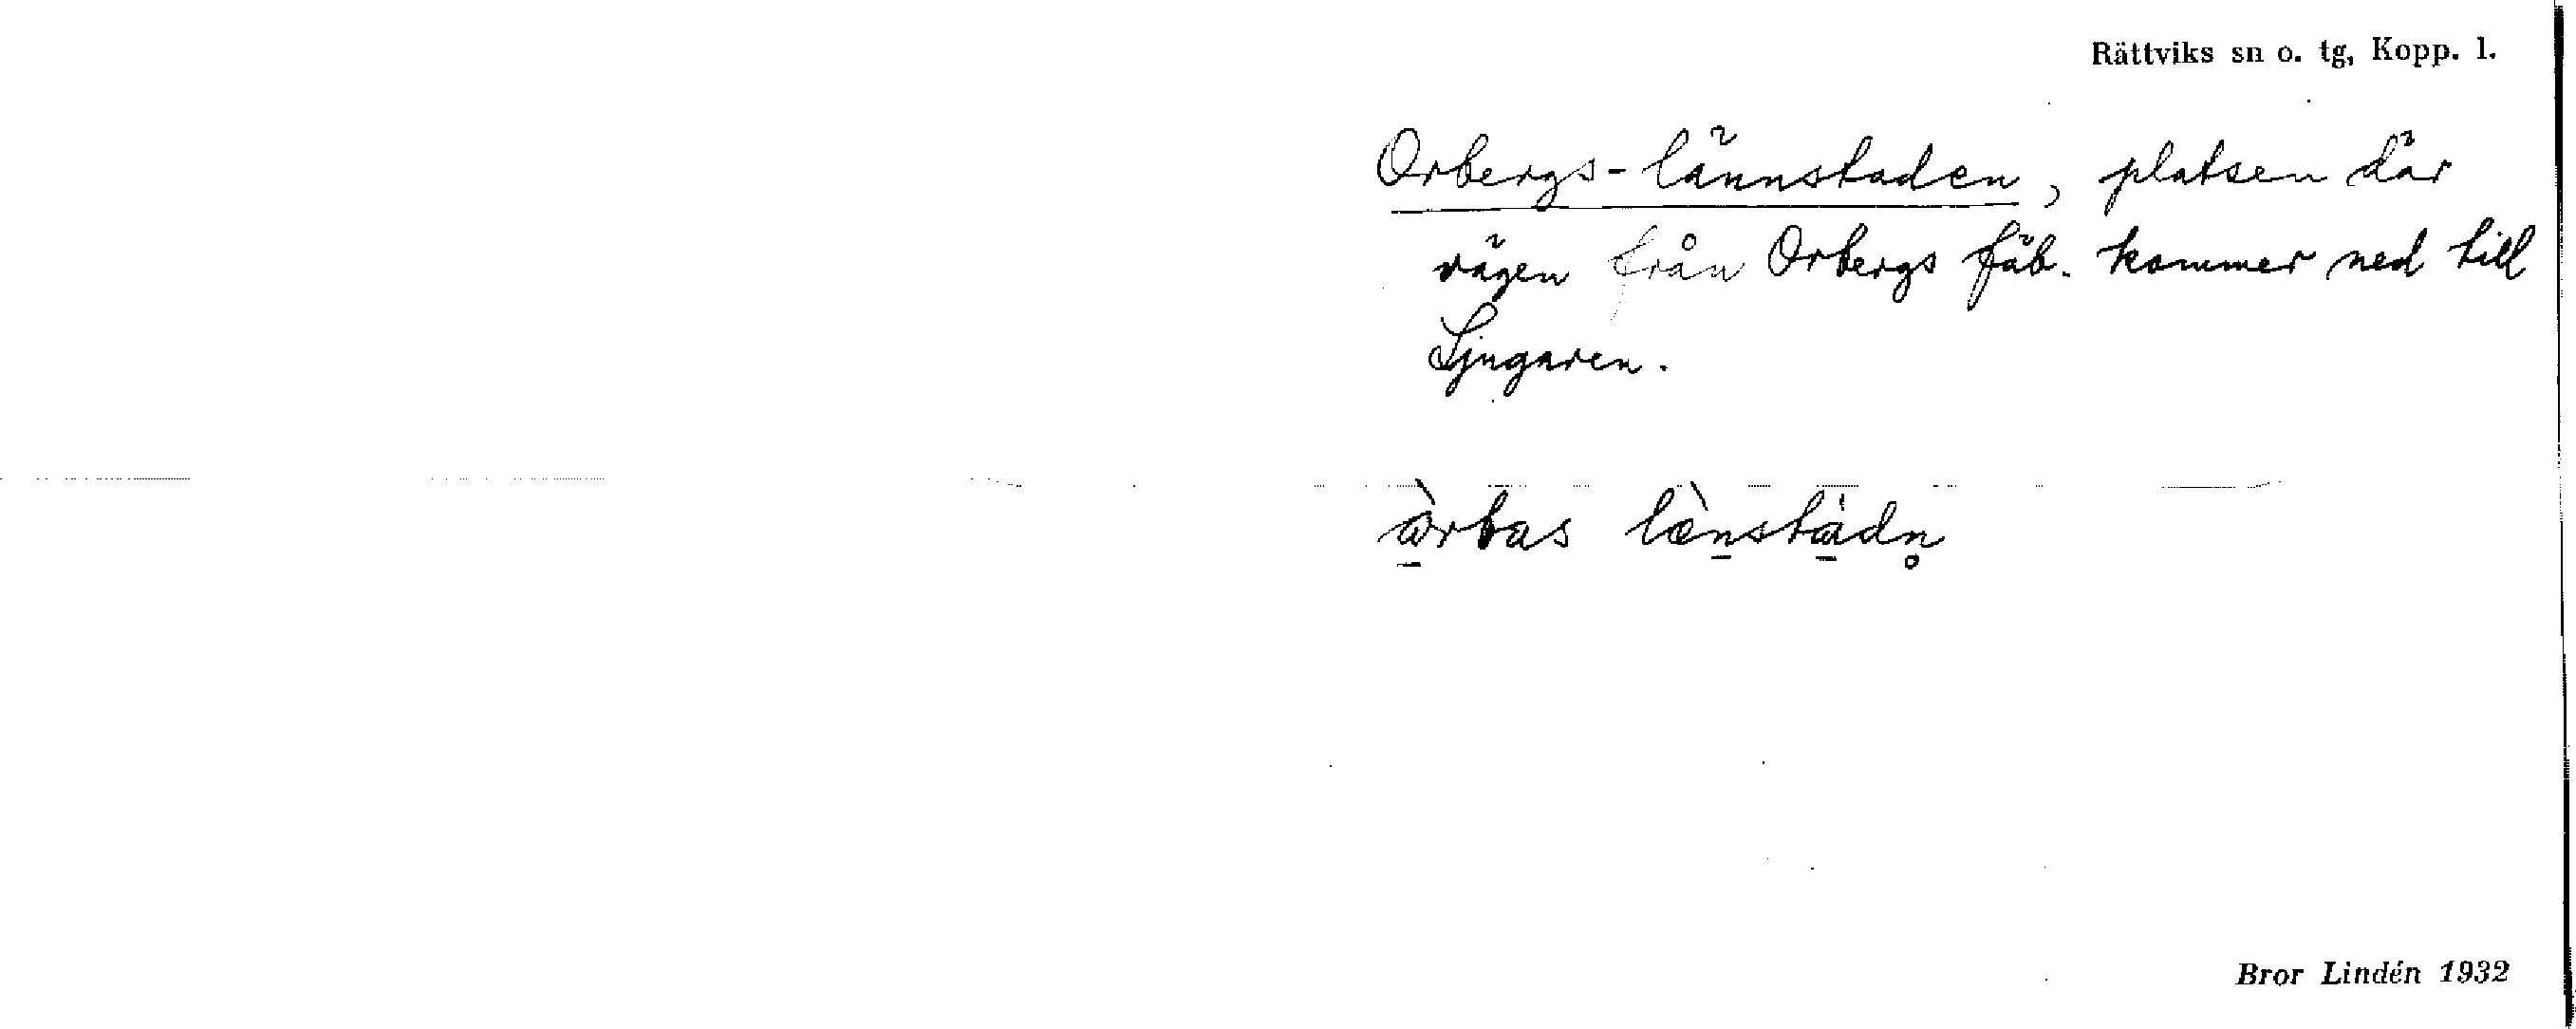 Rättviks sn o. tg, Kopp. l.
Orbergs-lännstaden, platsen där
vägen från Orbergs fäb. kommer ned till
Ljugaren.
Bror Lindén 1932